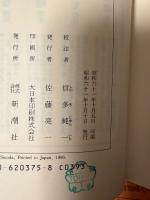 昭和六十一年十月五日 印刷
昭和六十一年十月十日 発行
校注者 信多純一
発行者 佐藤亮一
印刷所 大日本印刷株式会社
発行所 株式会社 新潮社
Shinoda, Printed in Japan, 1986.
-620375-8 C0393